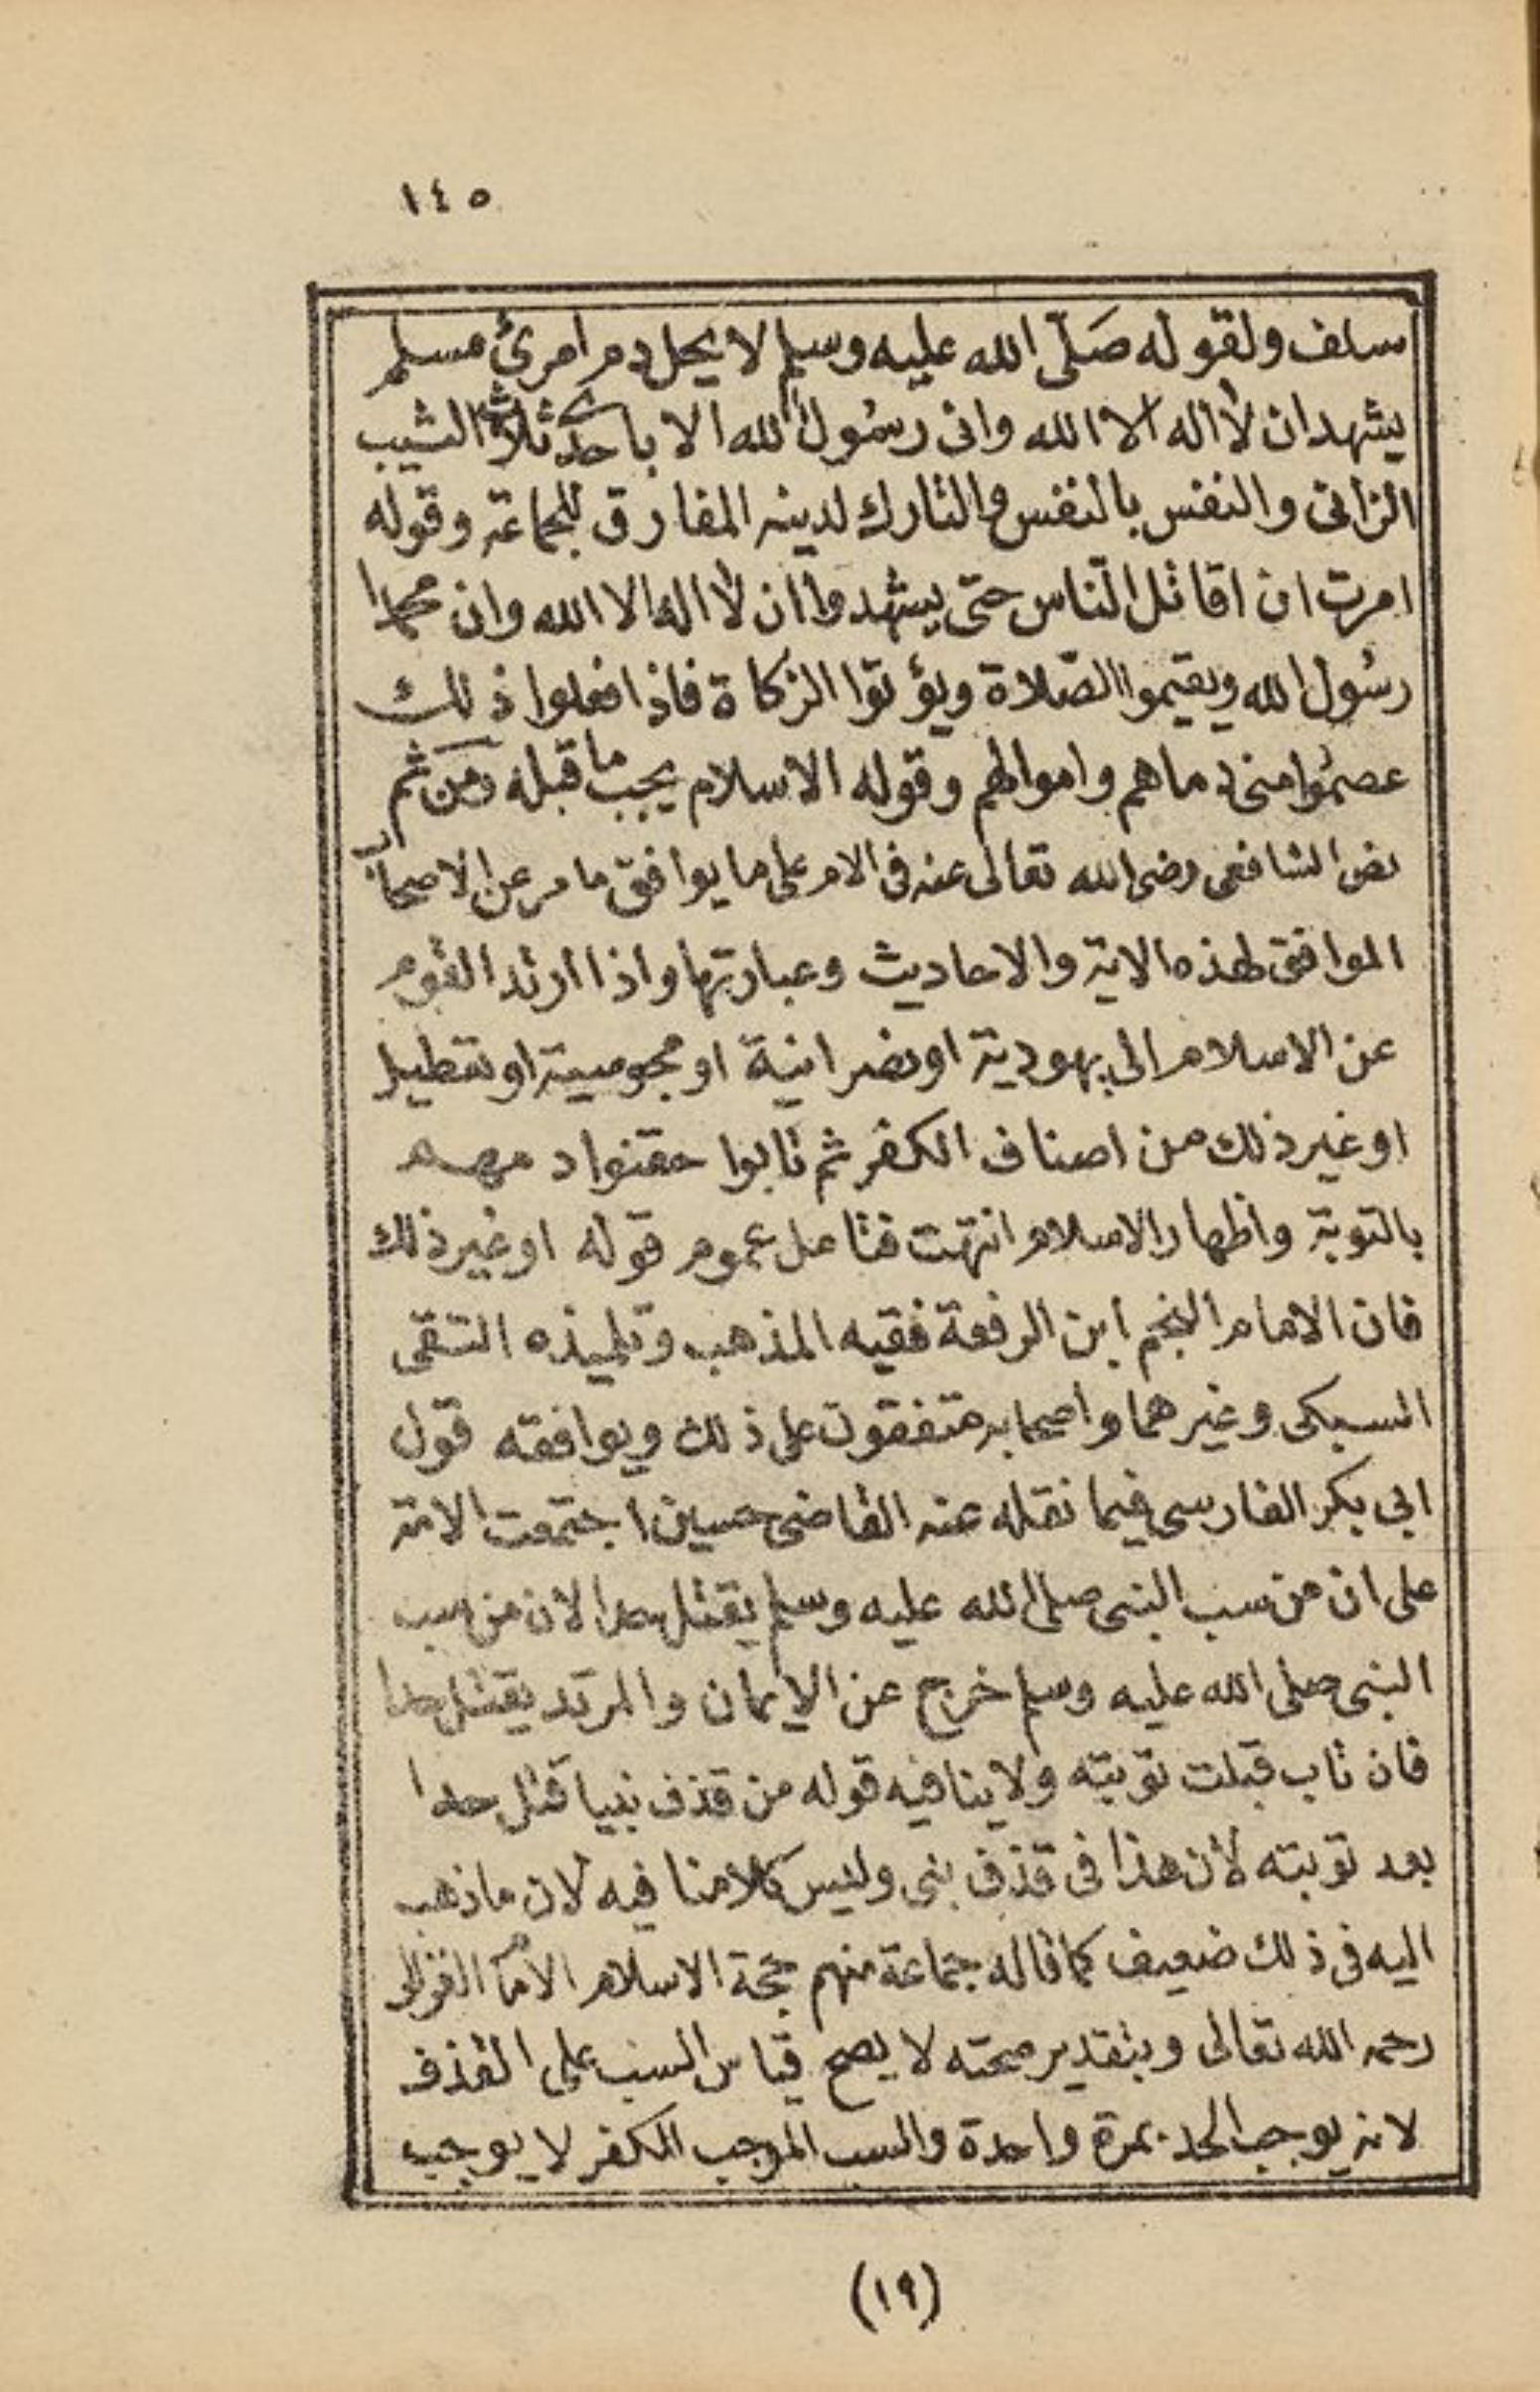 ١٤٥
سلف ولقوله صَلّى الله عليه وسلم لا يحل دم امرئ مسلم
يشهد ان لا اله الا الله وانى رسُول الله الا باحدى ثلاث الثيب
الزانى والنفس بالنفس والتارك لدينه المفارق للجماعة وقوله
امرت ان اقاتل الناس حتى يشهدوا ان لا اله الا الله وان محمدا
رسُول الله ويقيموا الصّلاة ويؤتوا الزكاة فاذا فعلوا ذلك
عصمُوا منى دماهم واموالهم وقوله الاسلام يجب ما قبله ومَن ثم
نص الشافعى رضى الله تعالى عنه فى الام على ما يوافق ما مر عن الاصحاب
الموافق لهذه الاية والاحاديث وعبارتها واذا ارتد القوم
عن الاسلام الى يهودية او نصرانية او مجوسية او تعطيل
او غير ذلك من اصناف الكفر ثم تابوا حقنوا دمهم
بالتوبة واظهار الاسلام انتهت فتامل عموم قوله او غير ذلك
فان الامام النجم ابن الرفعة فقيه المذهب وتلميذه التقى
السبكى وغيرهما واصحابه متفقون على ذلك ويوافقه قول
ابى بكر الفارسى فيما نقله عنه القاضى حسين اجتمعت الامة
على ان من سب النبى صلى الله عليه وسلم يقتل حدا لان من سب
النبى صلى الله عليه وسلم خرج عن الايمان والمرتد يقتل حدا
فان تاب قبلت توبته ولا ينافيه قوله من قذف نبيا قتل حدا
بعد توبته لأن هذا فى قذف نبى وليس كلامنا فيه لان ما ذهب
اليه فى ذلك ضعيف كما قاله جماعة منهم حجة الاسلام الامام الغزالى
رحمه الله تعالى وبتقدير صحته لا يصح قياس السب على القذف
لانه يوجب الحد بمرة واحدة والسب الموجب للكفر لا يوجب
(١٩)